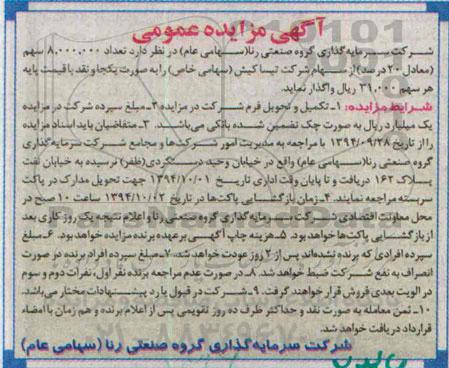 آگهی مزایده عمومی
شرکت سرمایه‌گذاری گروه صنعتی رنا(سهامی عام) در نظر دارد تعداد ۸,۰۰۰,۰۰۰ سهم
(معادل ۲۰ درصد) از سهام شرکت تیسا کیش (سهامی خاص) را به صورت یکجا و نقد با قیمت پایه
هر سهم ۳۱,۰۰۰ ریال واگذار نماید.
شرایط مزایده: ۱- تکمیل و تحویل فرم شرکت در مزایده ۲- مبلغ سپرده شرکت در مزایده
یک میلیارد ریال به صورت چک تضمین شده بانکی می‌باشد. ۳- متقاضیان باید اسناد مزایده
را از تاریخ ۱۳۹۴/۰۹/۲۸ با مراجعه به مدیریت امور شرکت‌ها و مجامع شرکت سرمایه‌گذاری
گروه صنعتی رنا(سهامی عام) واقع در خیابان وحید دستگردی(ظفر) نرسیده به خیابان نفت
پلاک ۱۶۲ دریافت و تا پایان وقت اداری تاریخ ۱۳۹۴/۱۰/۰۱ جهت تحویل مدارک در پاکت
سربسته مراجعه نمایند. ۴- زمان بازگشایی پاکت‌ها در تاریخ ۱۳۹۴/۱۰/۰۲ ساعت ۱۰ صبح در
محل معاونت اقتصادی شرکت سرمایه‌گذاری گروه صنعتی رنا و اعلام نتیجه یک روز کاری بعد
از بازگشایی پاکت‌ها خواهد بود. ۵- هزینه چاپ آگهی بر عهده برنده مزایده خواهد بود. ۶- مبلغ
سپرده افرادی که برنده نشده‌اند پس از ۲ روز عودت خواهد شد. ۷- مبلغ سپرده افراد برنده در صورت
انصراف به نفع شرکت ضبط خواهد شد. ۸- در صورت عدم مراجعه برنده نفر اول، نفرات دوم و سوم
در الویت بعدی فروش قرار خواهند گرفت. ۹- شرکت در قبول یا رد پیشنهادات مختار می‌باشد.
۱۰- ثمن معامله به صورت نقد و حداکثر ظرف ده روز تقویمی پس از اعلام برنده و هم زمان با امضاء
قرارداد دریافت خواهد شد.
شرکت سرمایه‌گذاری گروه صنعتی رنا (سهامی عام)